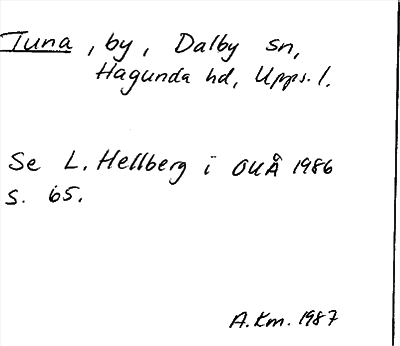 Tuna, by, Dalby sn,
Hagunda hd, Upps. l.
Se L. Hellberg i OUÅ 1986
s. 65.
A.Km. 1987